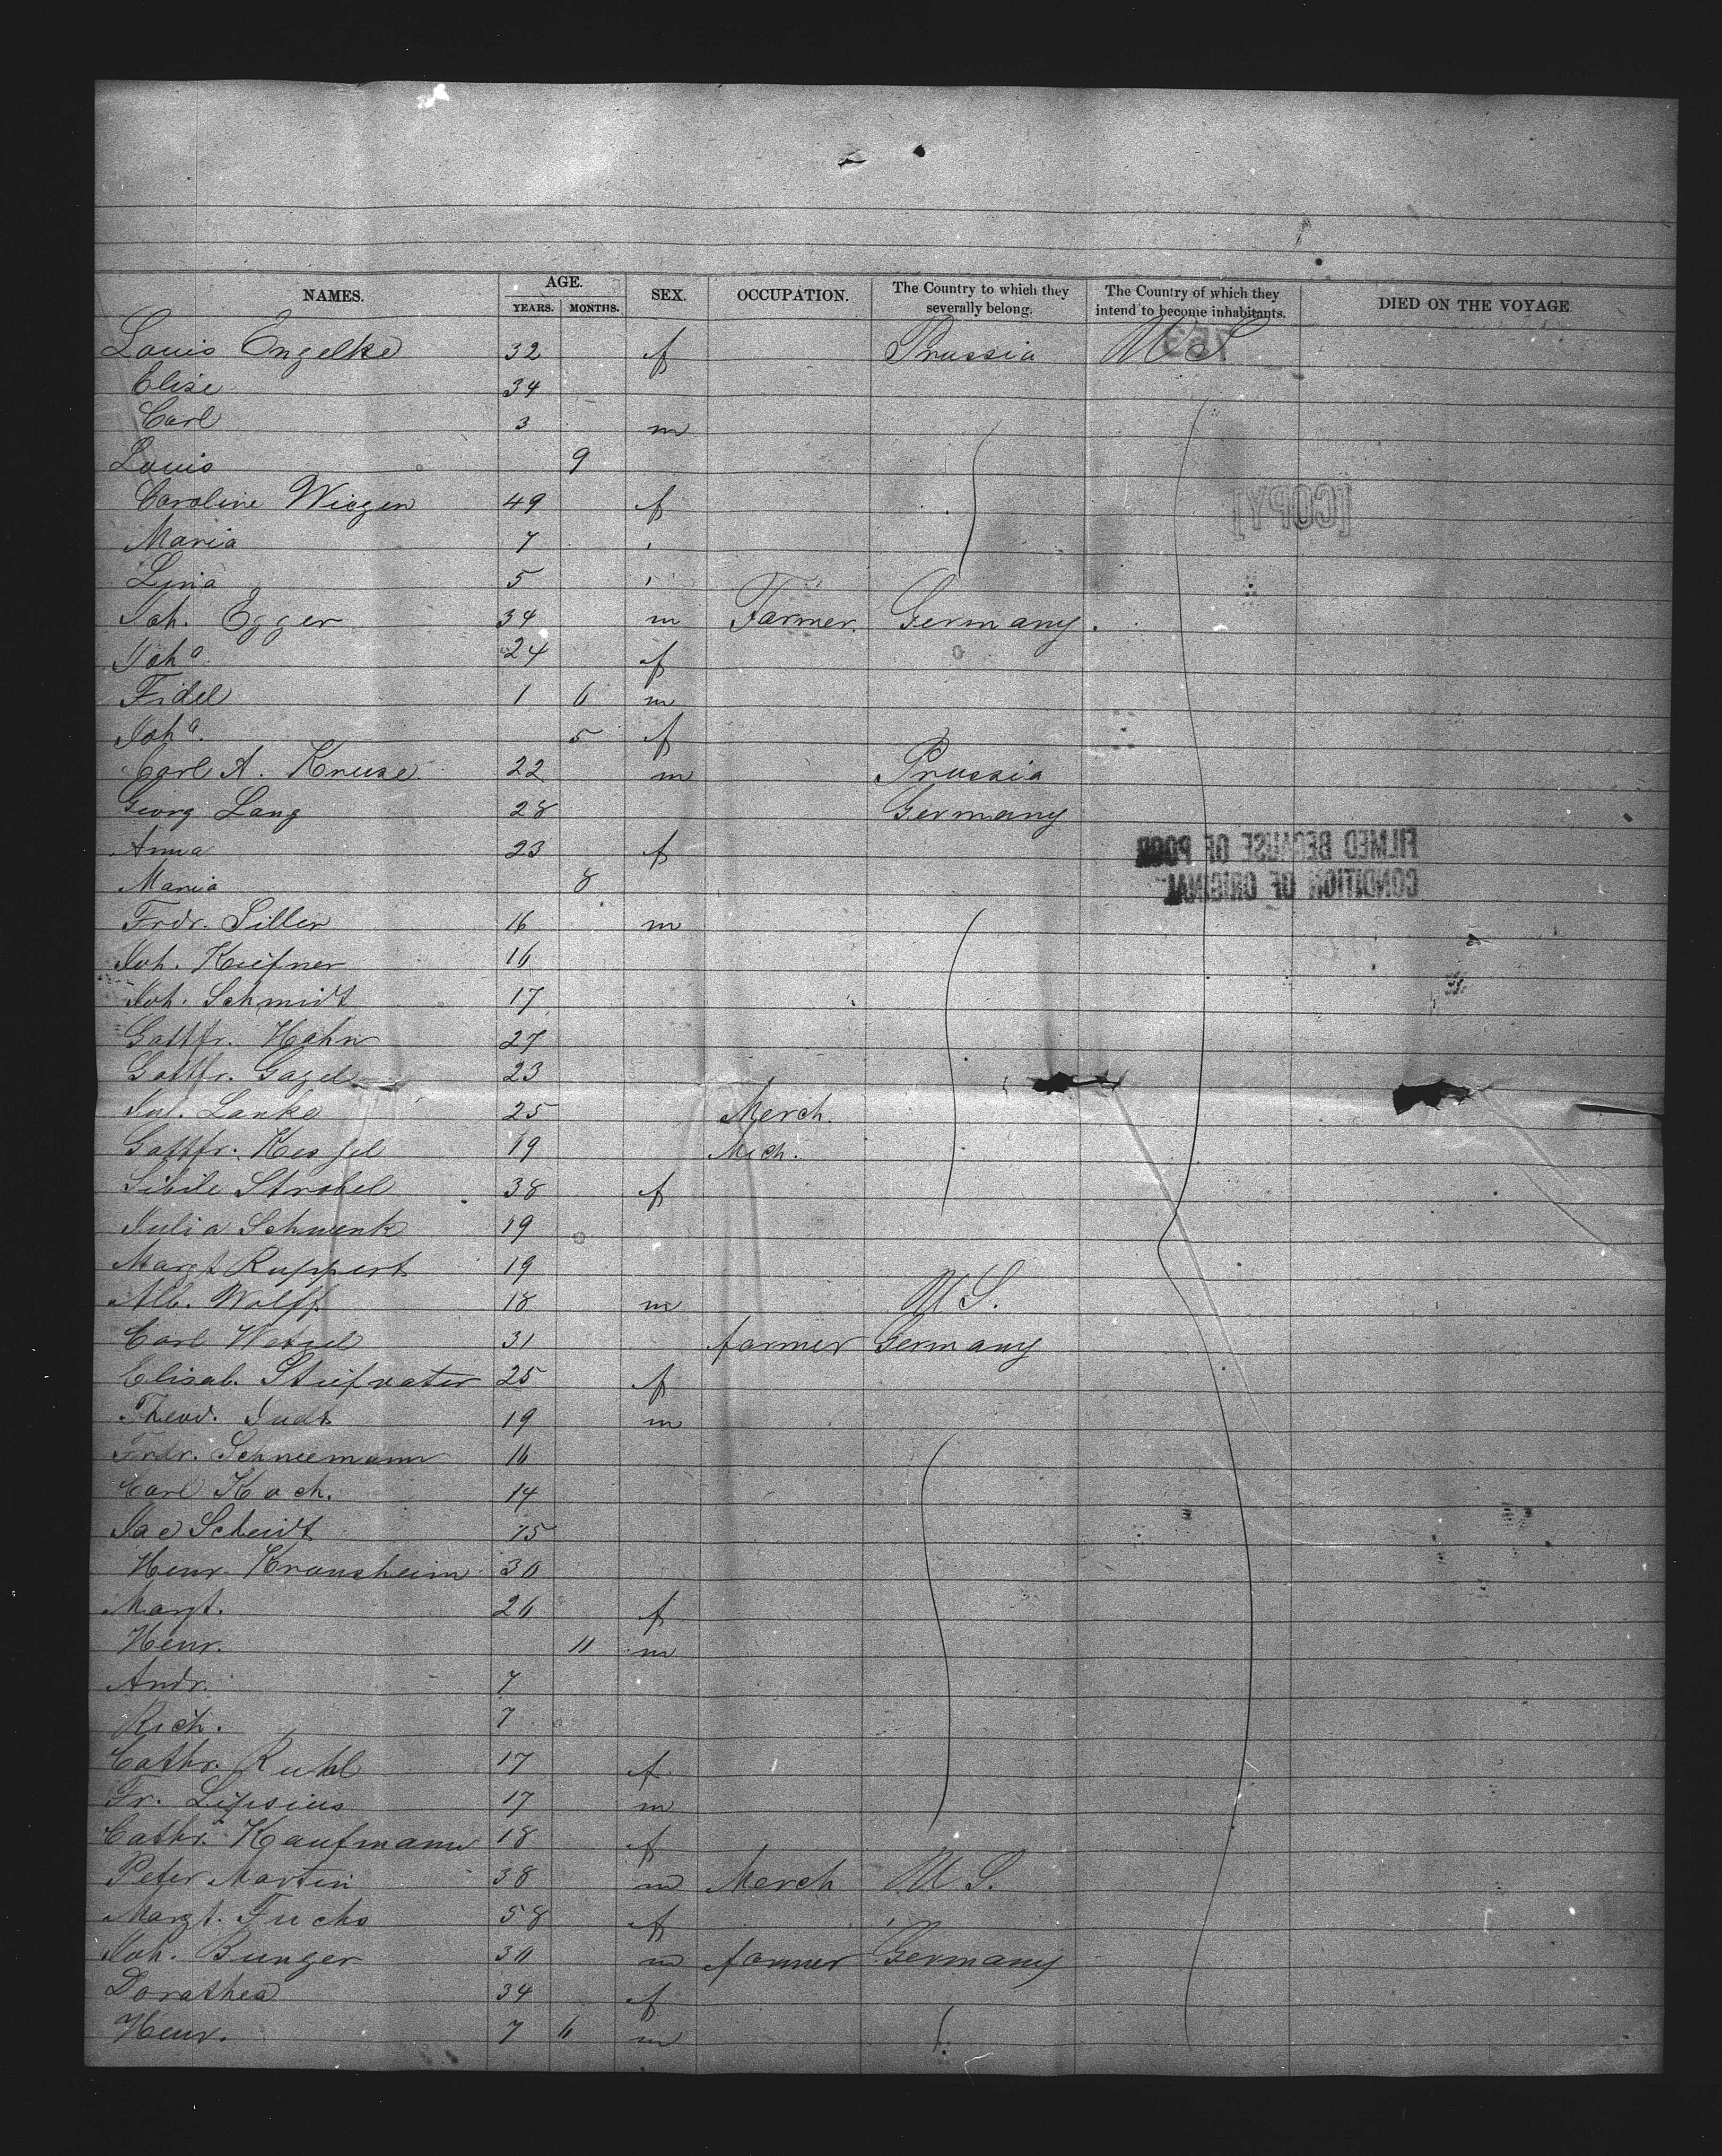 NAMES. AGE. YEARS. MONTHS. SEX. OCCUPATION. The Country to which they severally belong. The Country of which they intend to become inhabitants. DIED ON THE VOYAGE
Louis Engelke 32 f Prussia U S
Elise 34
Carl 3 m
Louis 9
[COPY]
Caroline Wiegen 49 f
Maria 7
Lina 5
Joh. Egger 34 m Farmer Germany.
Joha 24 f
Fidel 1 6 m
Joha. 5 f
Carl A. Kruse 22 m Prussia
Georg Lang 28 Germany
Anna 23 f
FILMED BECAUSE OF POOR
Maria 8
CONDITION OF ORIGINAL
Frdr. Siller 16 m
Joh. Kiefner 16
Joh. Schmidt 17
Gottfr. Hahn 27
Gottfr. Gagel 23
Jul. Lanke 25 Merch.
Gottfr. 19 Mech.
Sibile Strobel 38 f
Julia Schwenk 19
Margt Ruppert 19
Alb. Wolff 18 m U S.
Carl Wetzel 31 farmer Germany
Elisab. Stiefvater 25 f
Theod. Judt 19 m
Frdr. Schneemann 16
Carl Koch. 14
Jac Scheidt 15
Henr. Kransheim 30
Margt. 26 f
Henr. 11 m
Andr. 7
Rich. 7
Cathr. Ruhl 17 f
Fr. Lipsius 17 m
Cathr. Kaufmann 18 f
Peter Martin 38 m Merch U S.
Margt. Fuchs 58 f
Joh. Bunger 30 m farmer Germany
Dorathea 34 f
Henr. 7 6 m